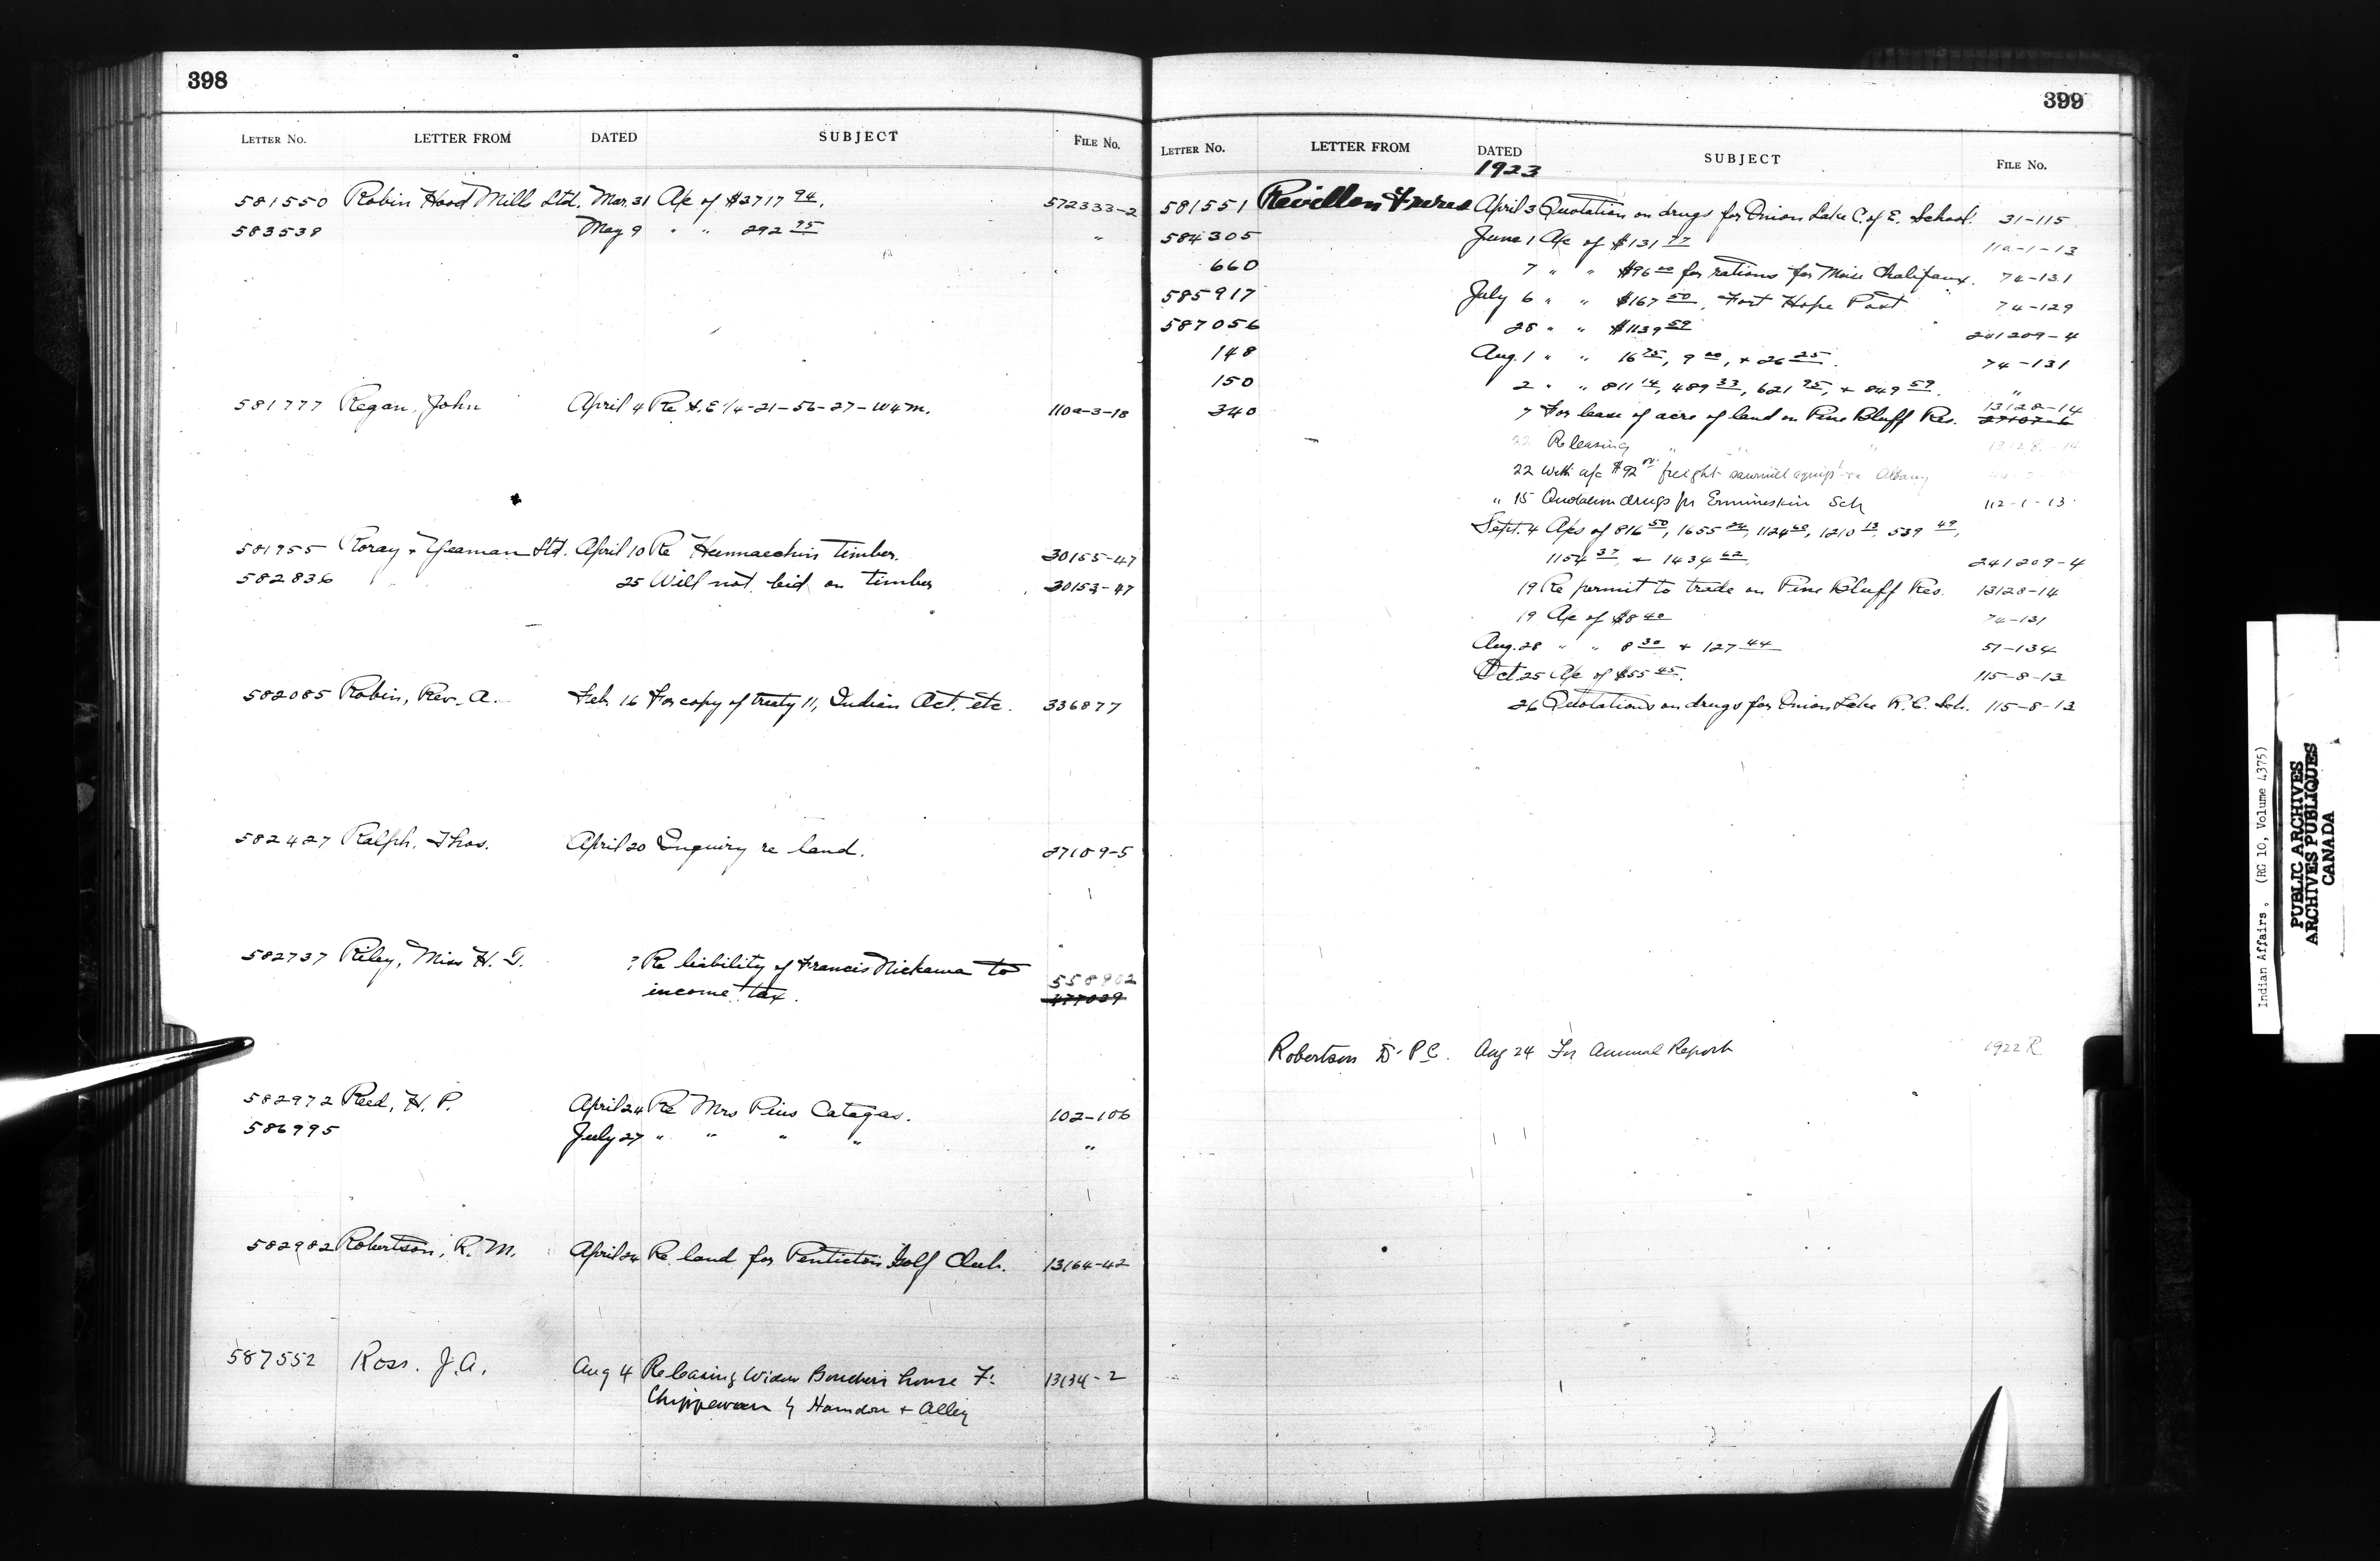 398
LETTER NO. LETTER FROM DATED SUBJECT FILE No.
581550 Robin Hood Mills Ltd. Mar. 31 A/c of $2717 94. 572333-2
583539 May 9 " " 292 75 "
581777 Regan, John April 4 Re S.E 1/4-21-56-27-W4M. 110a-3-18
581955 Roray & Yeaman Ltd. April 10 Re timber. 30155-47
582836 25 Will not bid on timber 30153-47
582085 Robin, Rev. A. Feb 16 For copy of treaty 11, Indian Act, etc. 336877
582427 Ralph, Thos. April 20 Inquiry re land. 27109-5
582737 Riley, Miss H. ? Re liability of Francis Nickawa to
income tax. 558902
477039
582972 Reed, H. P. April 24 Re Mrs Pius Catagas. 102-106
586995 July 27 " " " " "
582982 Robertson, R. M. April 24 Re land for Penticton Golf Club. 13164-42
587552 Ross. J.A. Aug 4 Re leasing Widow house Ft
Chippewean by + Alley 13134-2
399
LETTER No. LETTER FROM DATED SUBJECT FILE No.
1923
581551 Revillon Freres April 3 Quotation on drugs for Onion Lake C. of E. School. 31-115
584305 June 1 A/c of $131 77 11a-1-13
660 7 " " $96 00 for rations for Moise Chalifaux. 74-131
585917 July 6 " " $167 50, Fort Hope Post 74-129
587056 28 " " $1139 59 241209-4
148 Aug. 1 " " 16 75, 9 00, + 26 25. 74-131
150 2 " " 811 14, 489 33, 621 95, + 849 59. "
340 7 For lease of acre of land on Pine Bluff Res. 13128-14
27107-6
22 Re leasing " " " 13128-14
22 With a/c $92 freight sawmill equipt Albany
" 15 Quotation drugs for Ermineskin Sch 112-1-13
Sept. 4 A/cs of 816 50, 1655 24, 1124 60, 1210 13, 539 49,
1154 37, + 1434 62. 241209-4
19 Re permit to trade on Pine Bluff Res. 13128-14
19 A/c of $8 40 74-131
Aug. 28 " " 8 30 + 127 44 51-134
Oct 25 A/c of $55 45. 115-8-13
26 Quotations on drugs for Onion Lake R.C. Sch. 115-8-13
Robertson Dr P C. Aug 24 For Annual Report 1922 R
Indian Affairs. (RG 10, Volume 4375)
PUBLIC ARCHIVES
ARCHIVES PUBLIQUES
CANADA